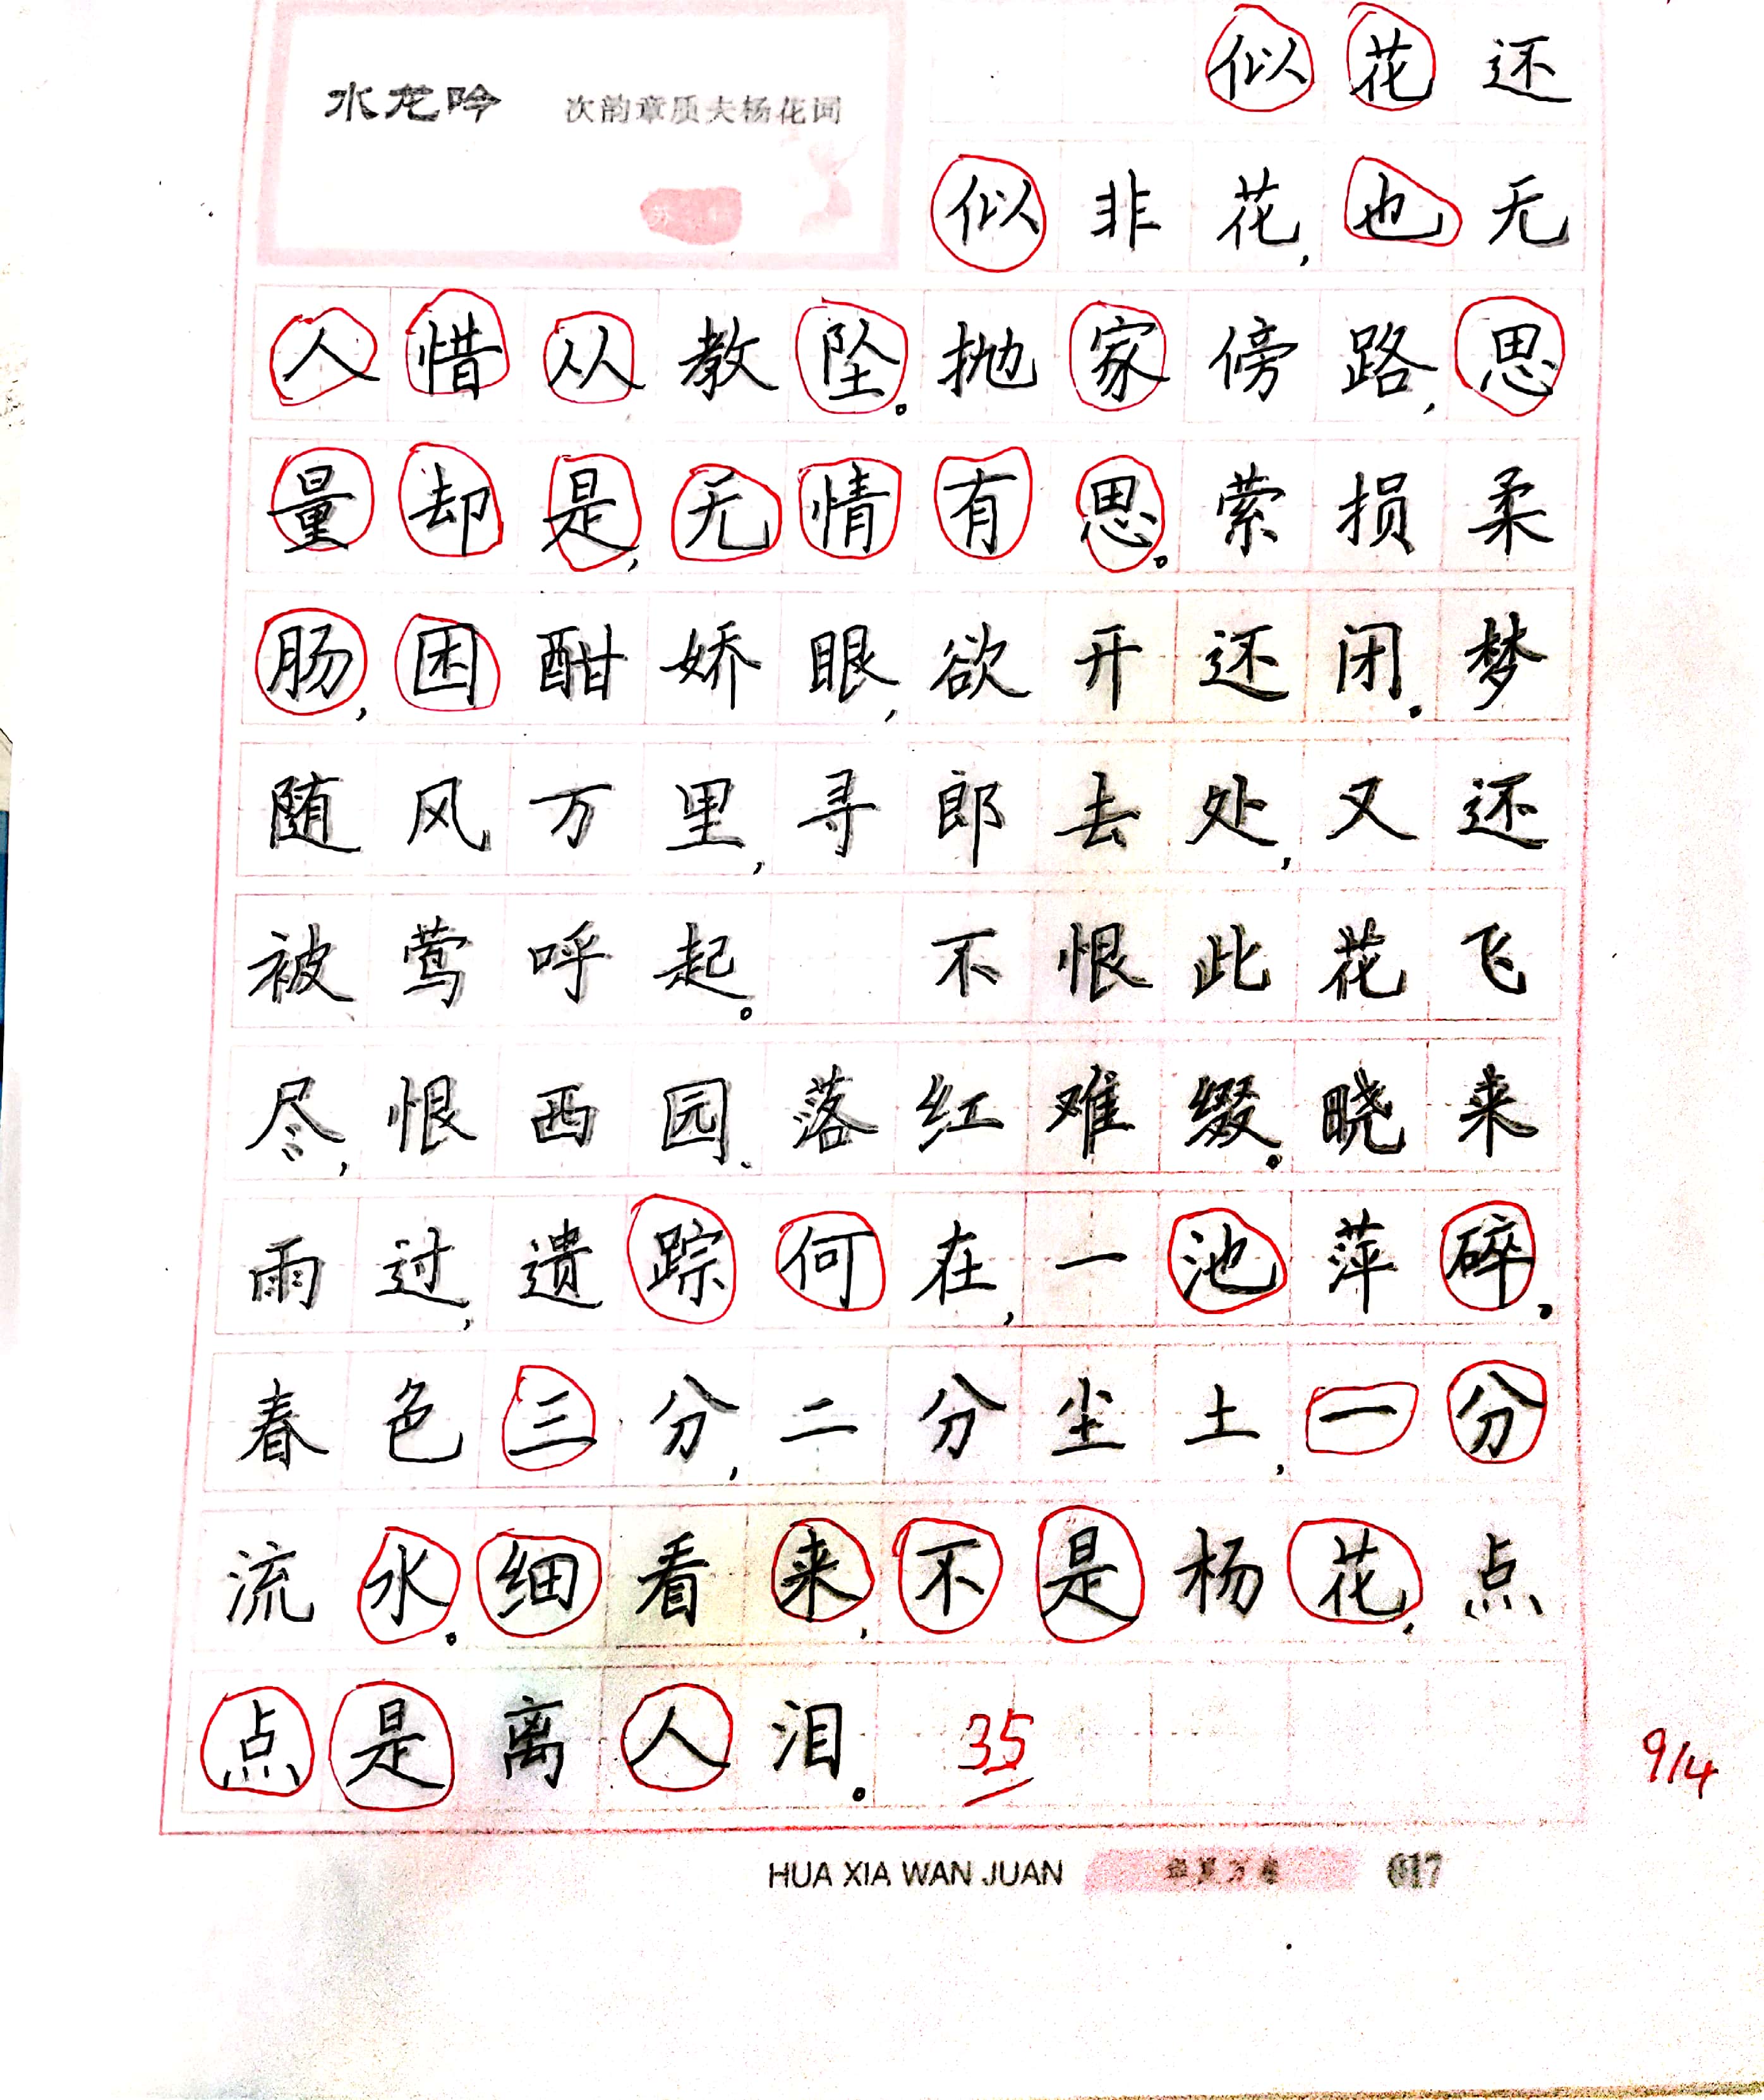 水龙吟 次韵章质夫杨花词
似花还
似非花,也无
人惜从教坠。抛家傍路,思
量却是,无情有思。萦损柔
肠,困酣娇眼,欲开还闭。梦
随风万里,寻郎去处,又还
被莺呼起。 不恨此花飞
尽,恨西园、落红难缀。晓来
雨过,遗踪何在,一池萍碎。
春色三分,二分尘土,一分
流水。细看来,不是杨花,点
点是离人泪。 35
9/4
HUA XIA WAN JUAN 华夏万卷 017